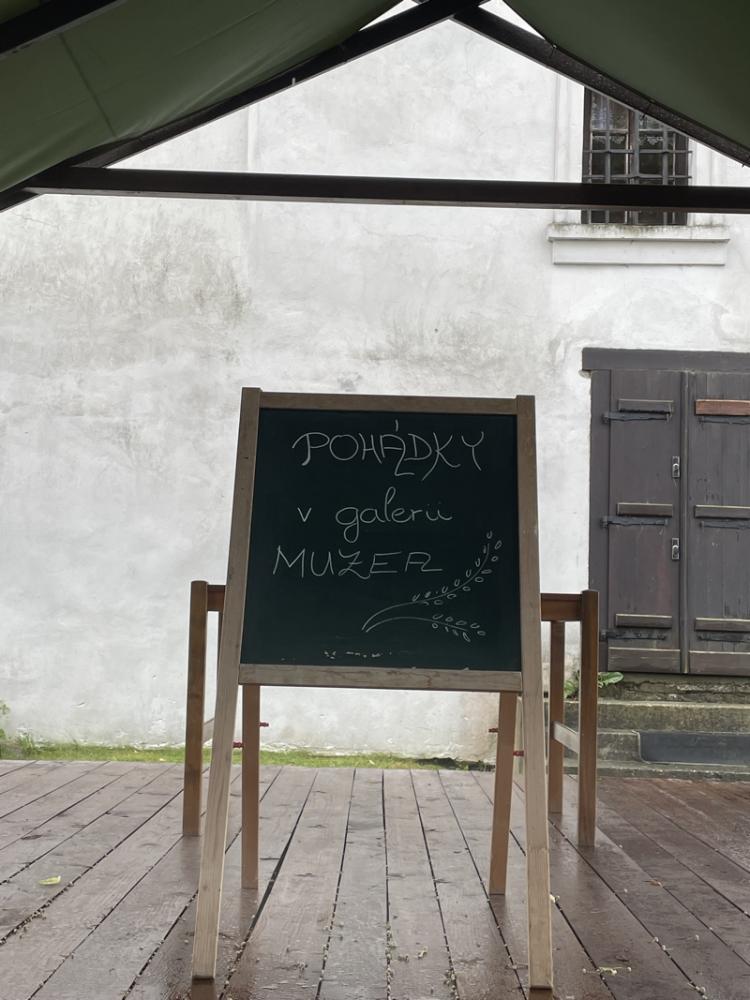 POHÁDKY
v galerii
MUZEA